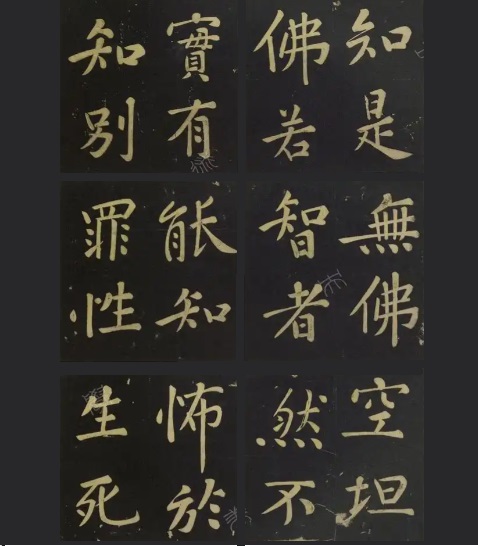 知是
佛若
實有
知別
無佛
智者
能知
罪性
空坦
然不
怖於
生死